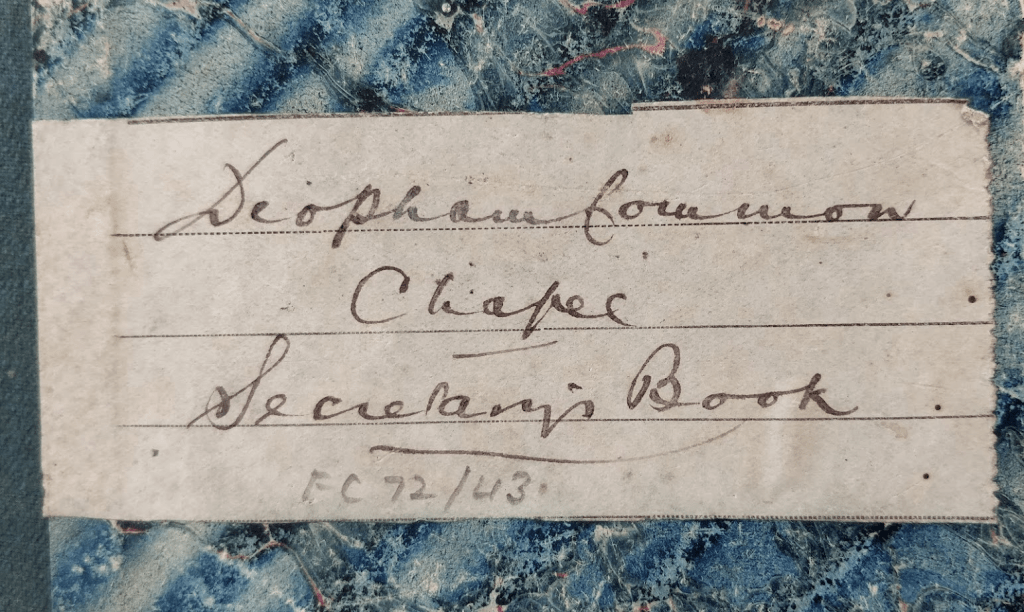 Deopham Common
Chapel
Secretary's Book
FC 72/43